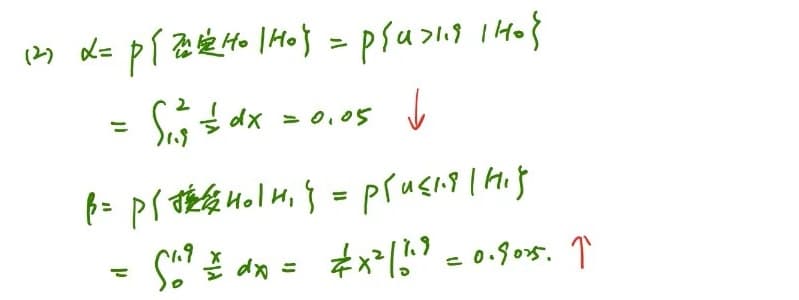 (2) α = P{否定H₀|H₀} = P{u>1.9 | H₀}
= ∫₁.₉² 1/2 dx = 0.05 ↓
β = P{接受H₀|H₁} = P{u≤1.9 | H₁}
= ∫₀¹·⁹ x/2 dx = 1/4 x²|₀¹·⁹ = 0.9025. ↑